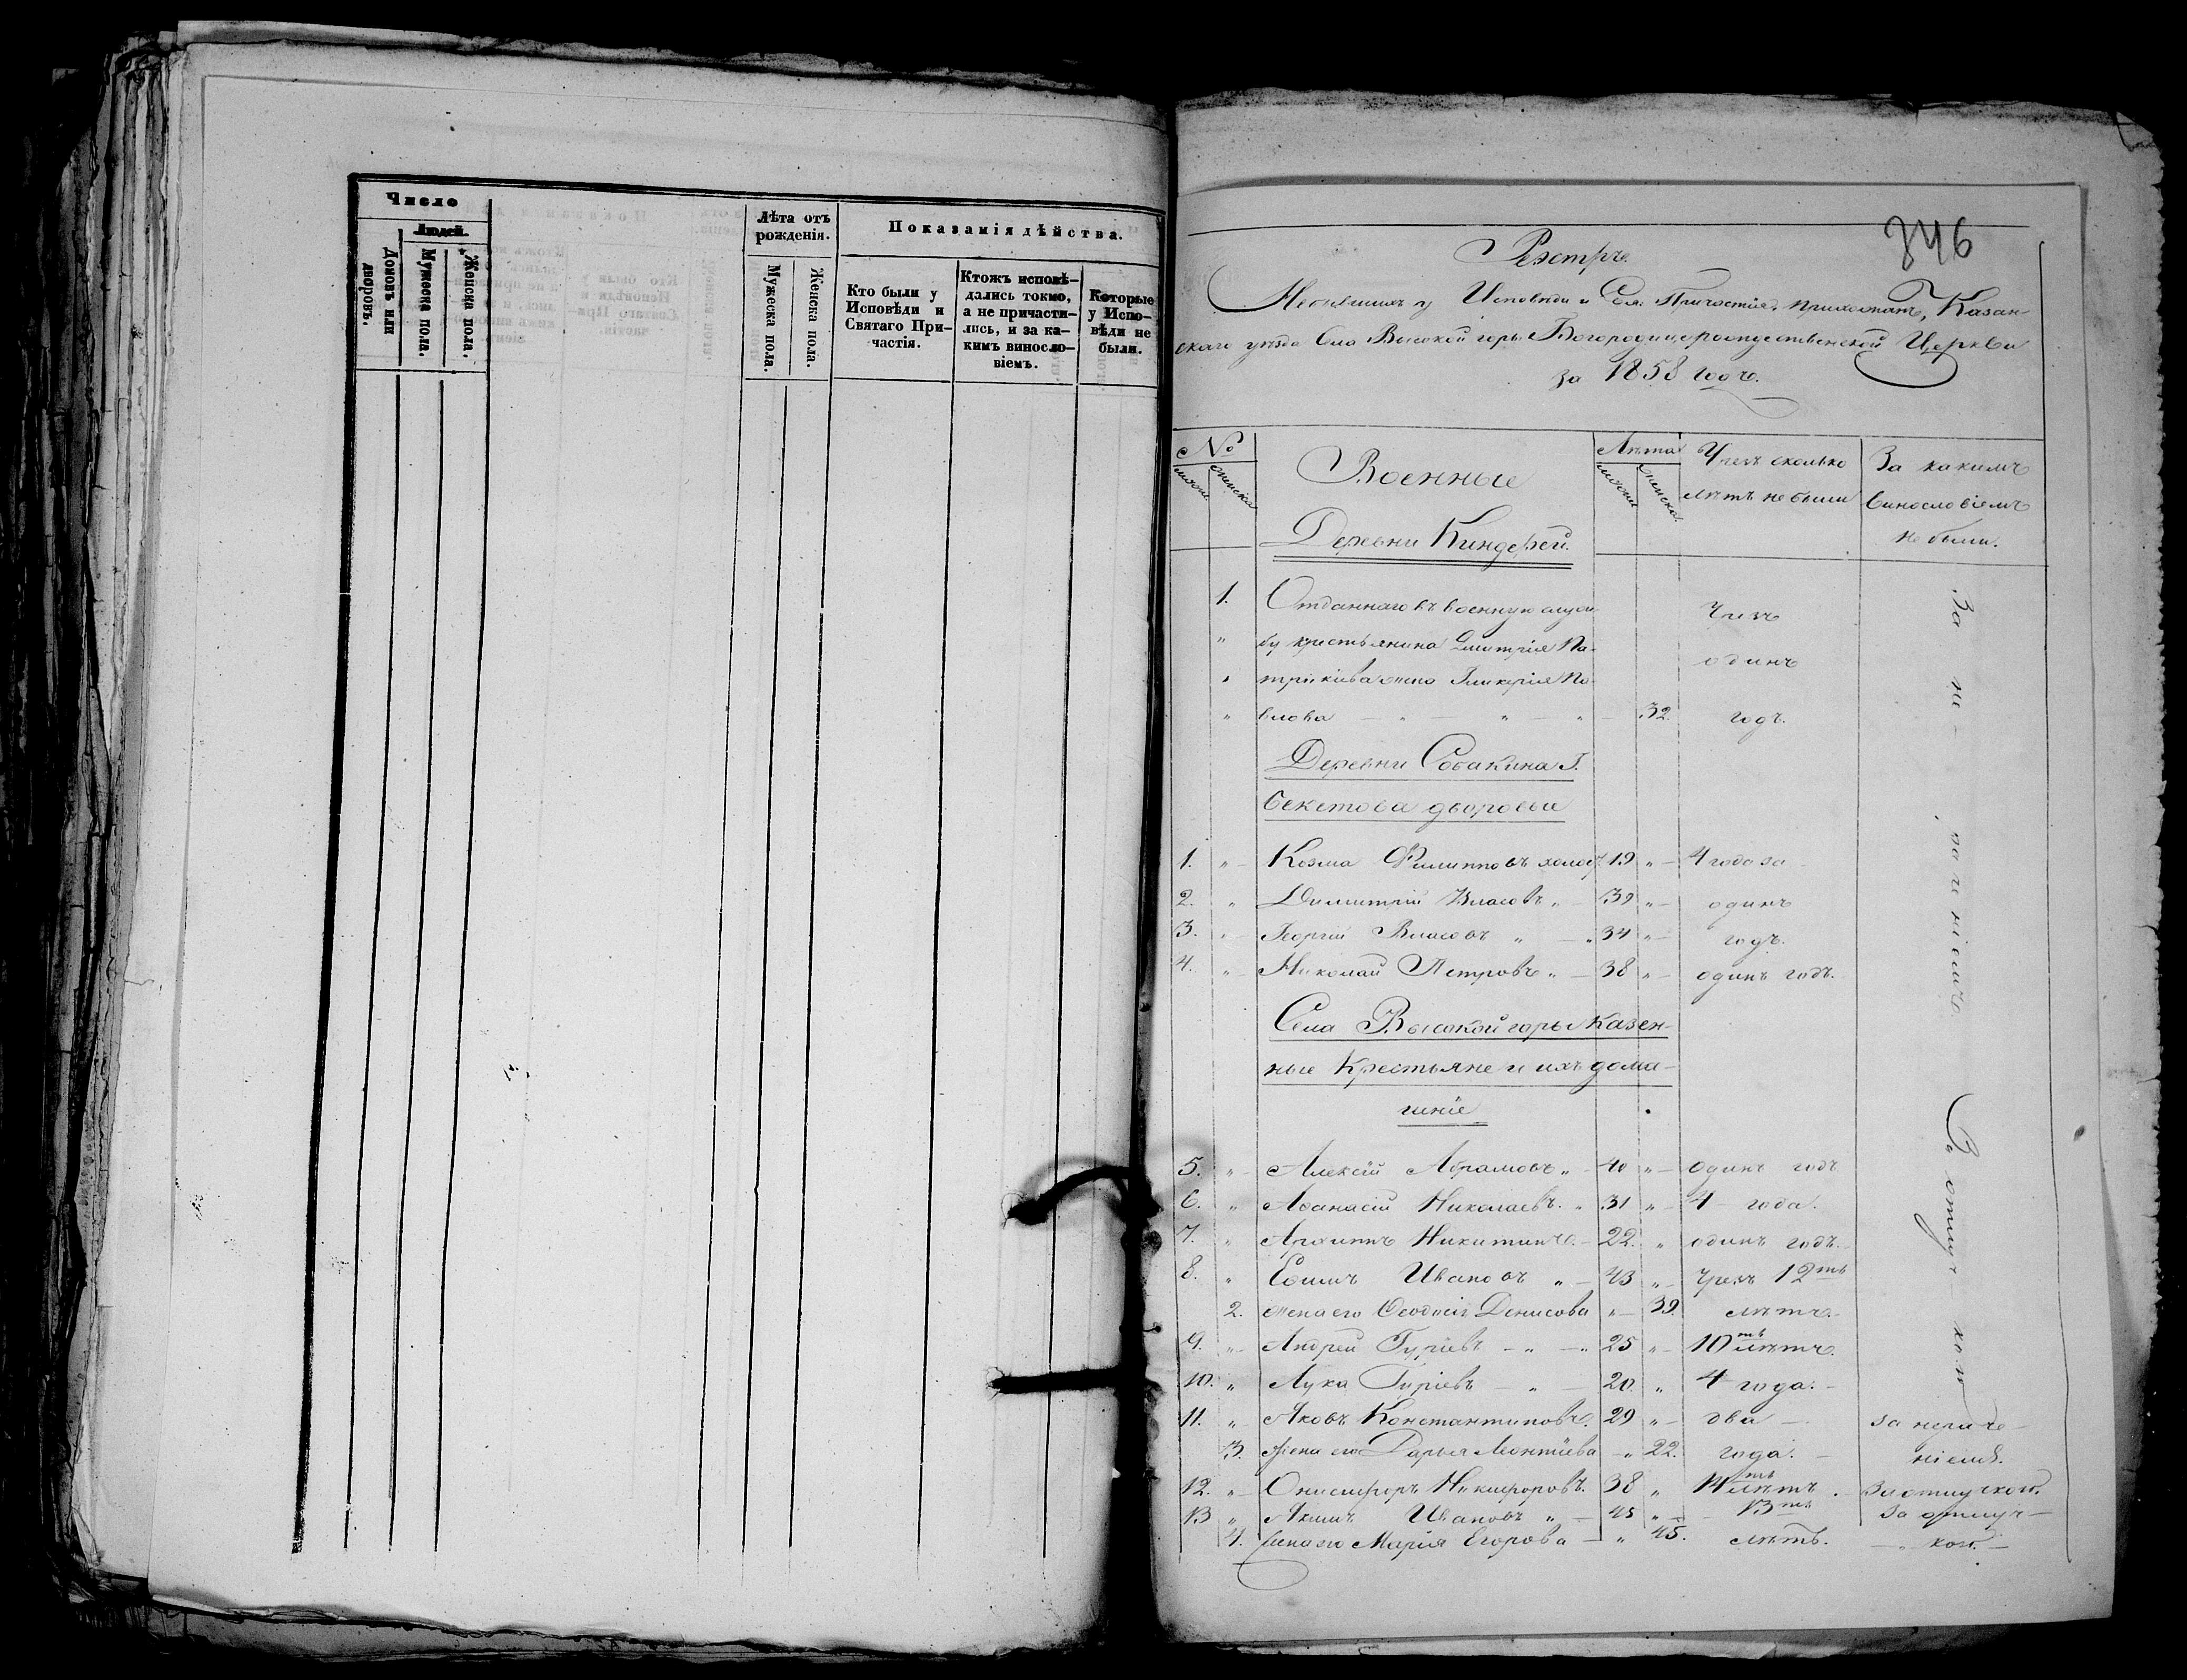 Число
Людей.
Домовъ или дворовъ.
Мужеска пола.
Женска пола.
Лѣта отъ рожденія.
Мужеска пола.
Женска пола.
Показанія дѣйства.
Кто были у Исповѣди и Святаго При-
частія.
Ктожъ исповѣ-
дались токмо,
а не причасти-
лись, и за ка-
кимъ винослo-
віемъ.
Которые
у Испо-
вѣди не
были.
346
Реэстръ
Небывшихъ у Исповѣди и Свя. Причастія, прихожанъ, Казан-
скаго уѣзда Села Высокой горы Богородицерождественской Церкви
за 1858 годъ.
№
мужск.
женска
Военные
Деревни Киндерей.
Лѣта
мужск
женска
Чрезъ сколько
лѣтъ не были
За какимъ
винословіемъ
не были.
1. Отданнаго въ военную служ-
" бу крестьянина Димитрія Па-
" трикіева жена Гликерія Па-
" влова 32.
Чрезъ
одинъ
годъ.
Деревни Собакина Г.
Бекетова дворовые
1. " Козма Филипповъ холос. 19 " 4 года за
2. " Димитрій Власовъ " 39 " одинъ
3. " Георгій Власовъ " 34 " годъ.
4. " Николай Петровъ " 38 " одинъ годъ.
За не-
раченіемъ
Села Высокой горы казен-
ные Крестьяне и ихъ дома-
шніе
5. " Алексій Абрамовъ " 40 " одинъ годъ
6. " Афанасій Николаевъ. " 31 " 4 года.
7. " Архиппъ Никитинъ. 22. " одинъ годъ.
8. " Ефимъ Ивановъ " 43 " чрезъ 12ть
2. жена его Феодосія Денисова " 39. лѣтъ.
9. " Андрей Гуріевъ " " 25 " 10ть лѣтъ.
10. " Лука Гуріевъ " 20 " 4 года.
За отлуч-
кою
11. " Яковъ Константиновъ. 29 " два за нераче
3. жена его Дарья Леонтіева " 22. года. ніемъ.
12. " Онисифоръ Никифоровъ. 38 " 14ть лѣтъ. За отлучкой.
13 " Якимъ Ивановъ " 45 " 13ть за отлуч-
4. жена его Марія Егорова " 45. лѣтъ. " кой.